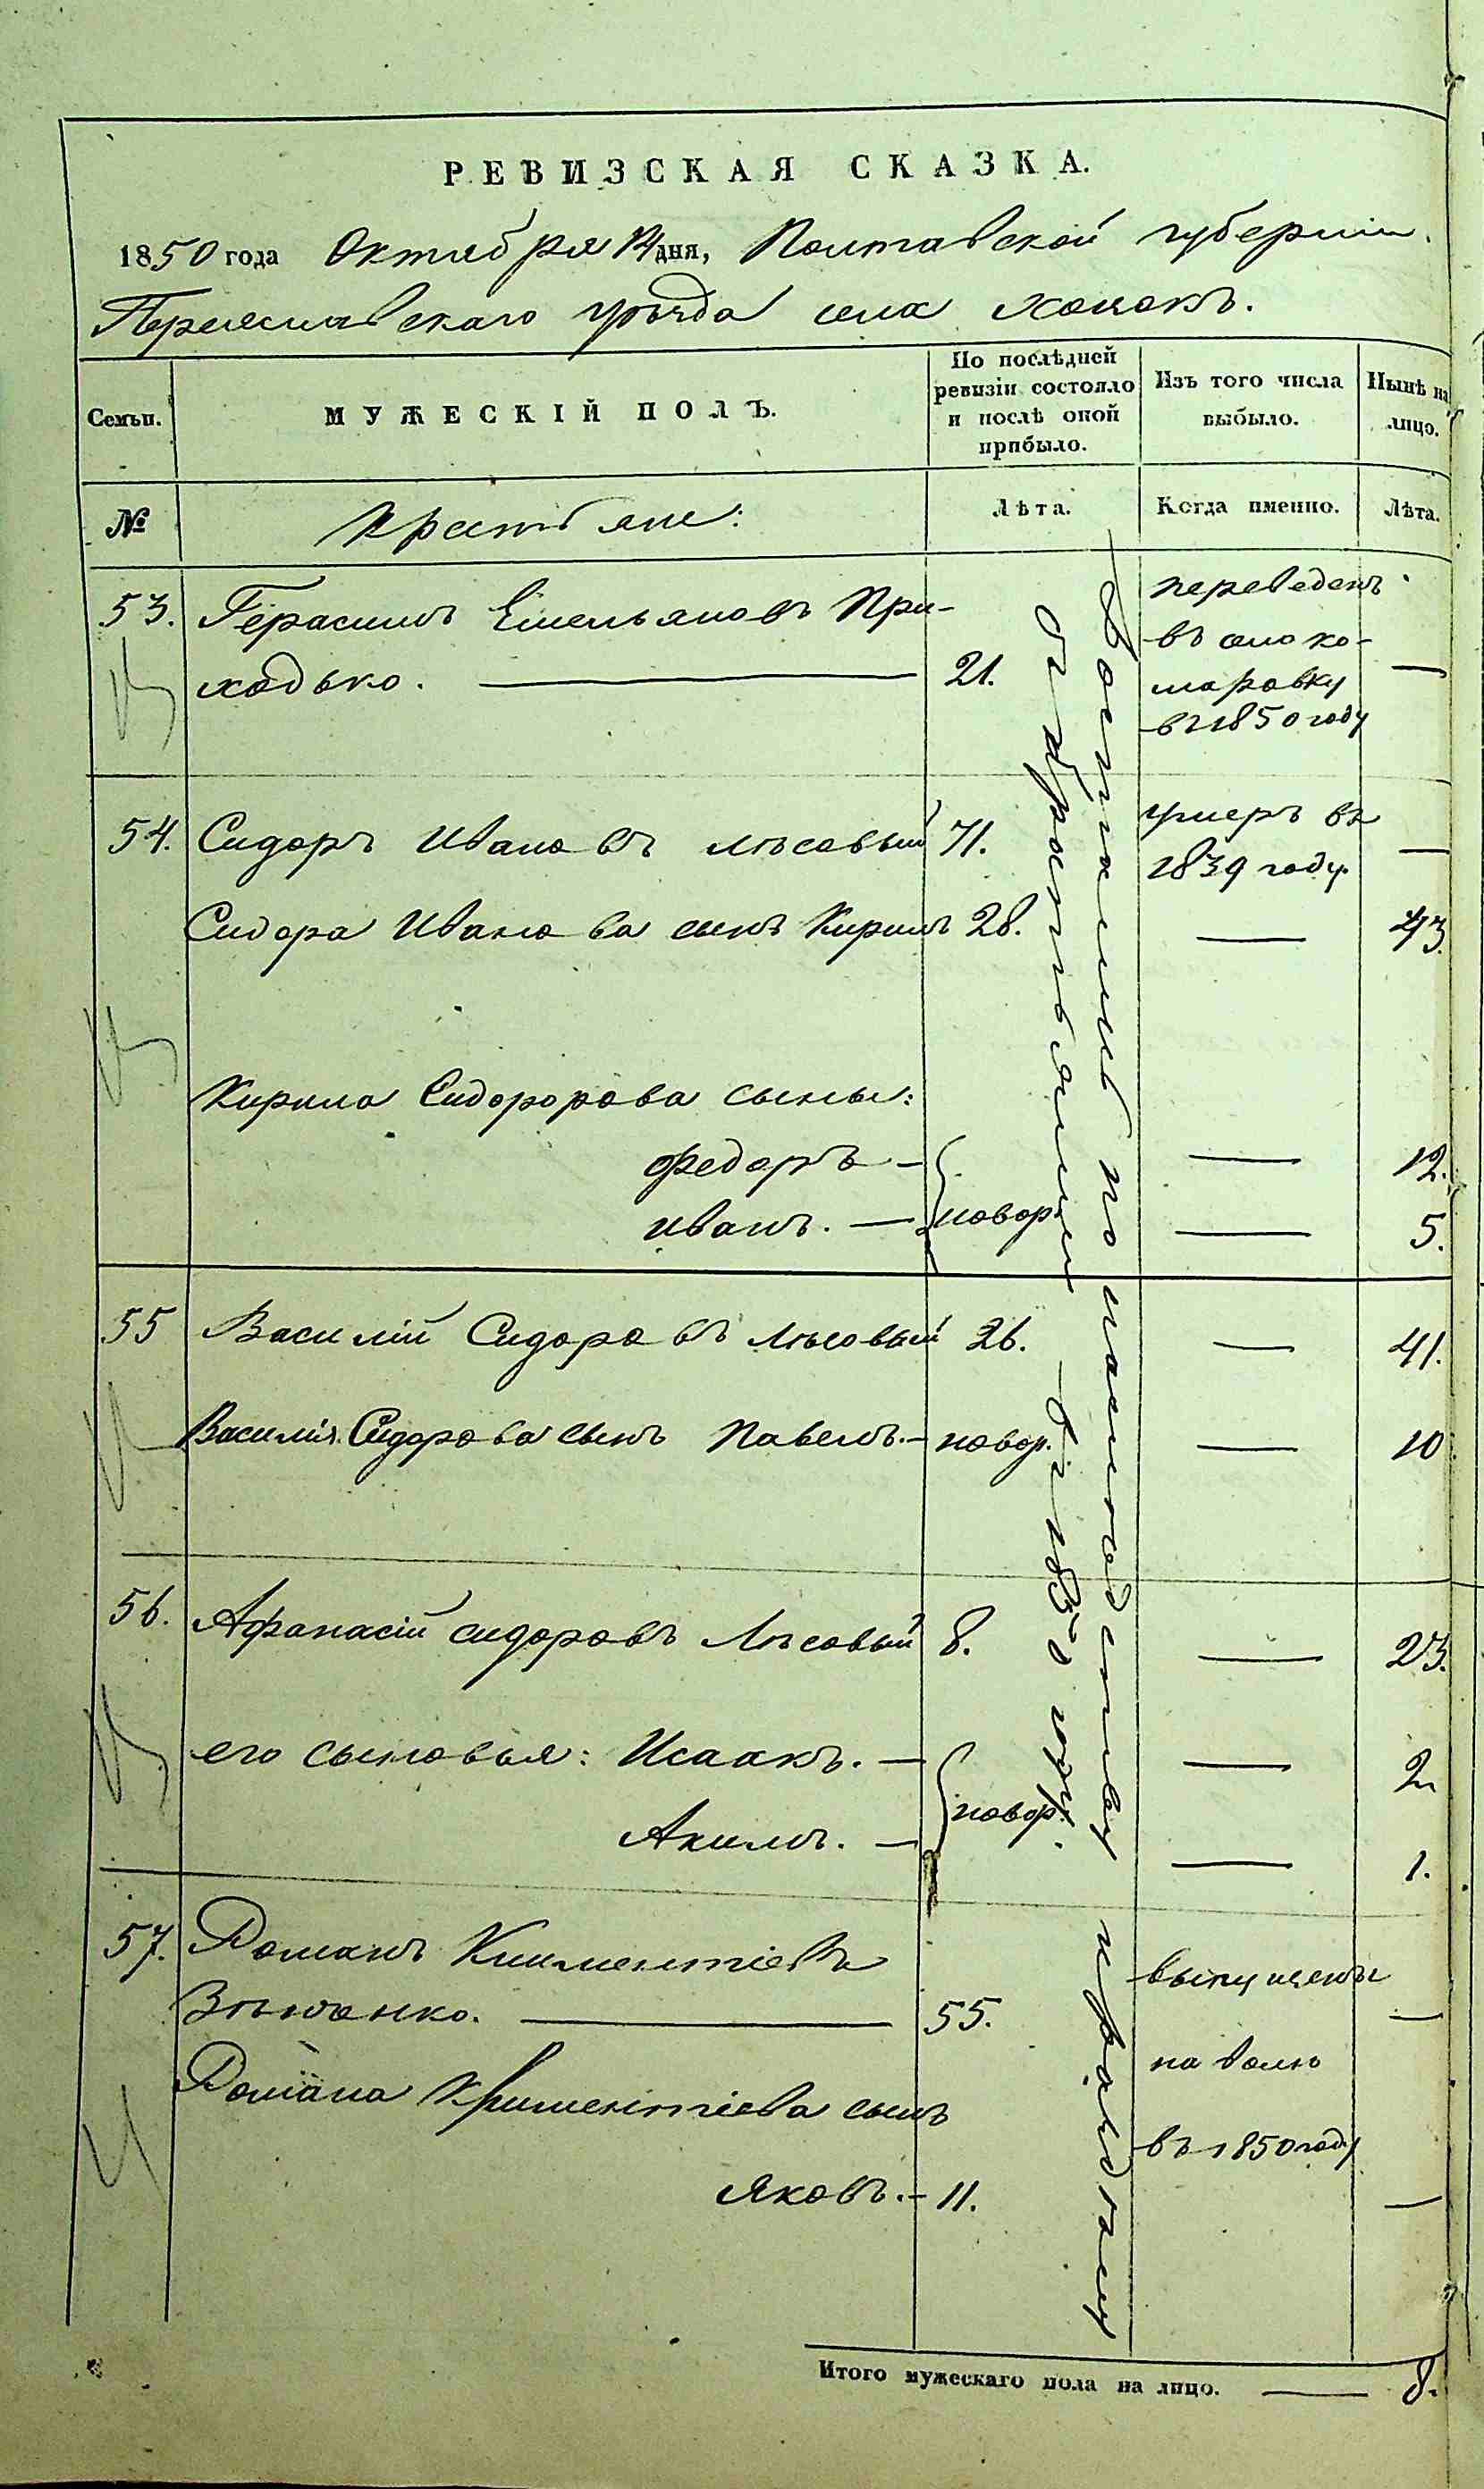 РЕВИЗСКАЯ СКАЗКА.
1850 года Октября 14 дня, Полтавской губернии.
Переяславскаго уѣзда села Хоцокъ.
Семьи.
МУЖЕСКІЙ ПОЛЪ.
По послѣдней ревизіи состояло и послѣ оной прибыло.
Изъ того числа выбыло.
Нынѣ на лицо.
№
Крестьяне:
Лѣта.
Когда именно.
Лѣта.
53. Герасимъ Емельяновъ При-
ходько. — 21. —
переведенъ
въ село Ко-
маровку
въ 1850 году
54. Сидоръ Ивановъ Лѣсовый 71. умеръ въ 1839 году. —
Сидора Иванова сынъ Кирилъ 28. — 43.
Кирила Сидоророва сыны:
Федоръ — — 12.
Иванъ. — новор. — 5.
55 Василій Сидоровъ Лѣсовый 26. — 41.
Василія Сидорова сынъ Павелъ. — новор. — 10
56. Афанасій Сидоровъ Лѣсовый 8. — 23.
его сыновья: Исаакъ. — — 2
Акимъ. — новор. — 1.
57. Романъ Климентіевъ
— 55. —
Романа Климентіева сынъ
Яковъ. — 11. —
выпущены
на волю
въ 1850 году
Достались по наслѣдству
отъ
въ году.
Итого мужескаго пола на лицо. — 8.